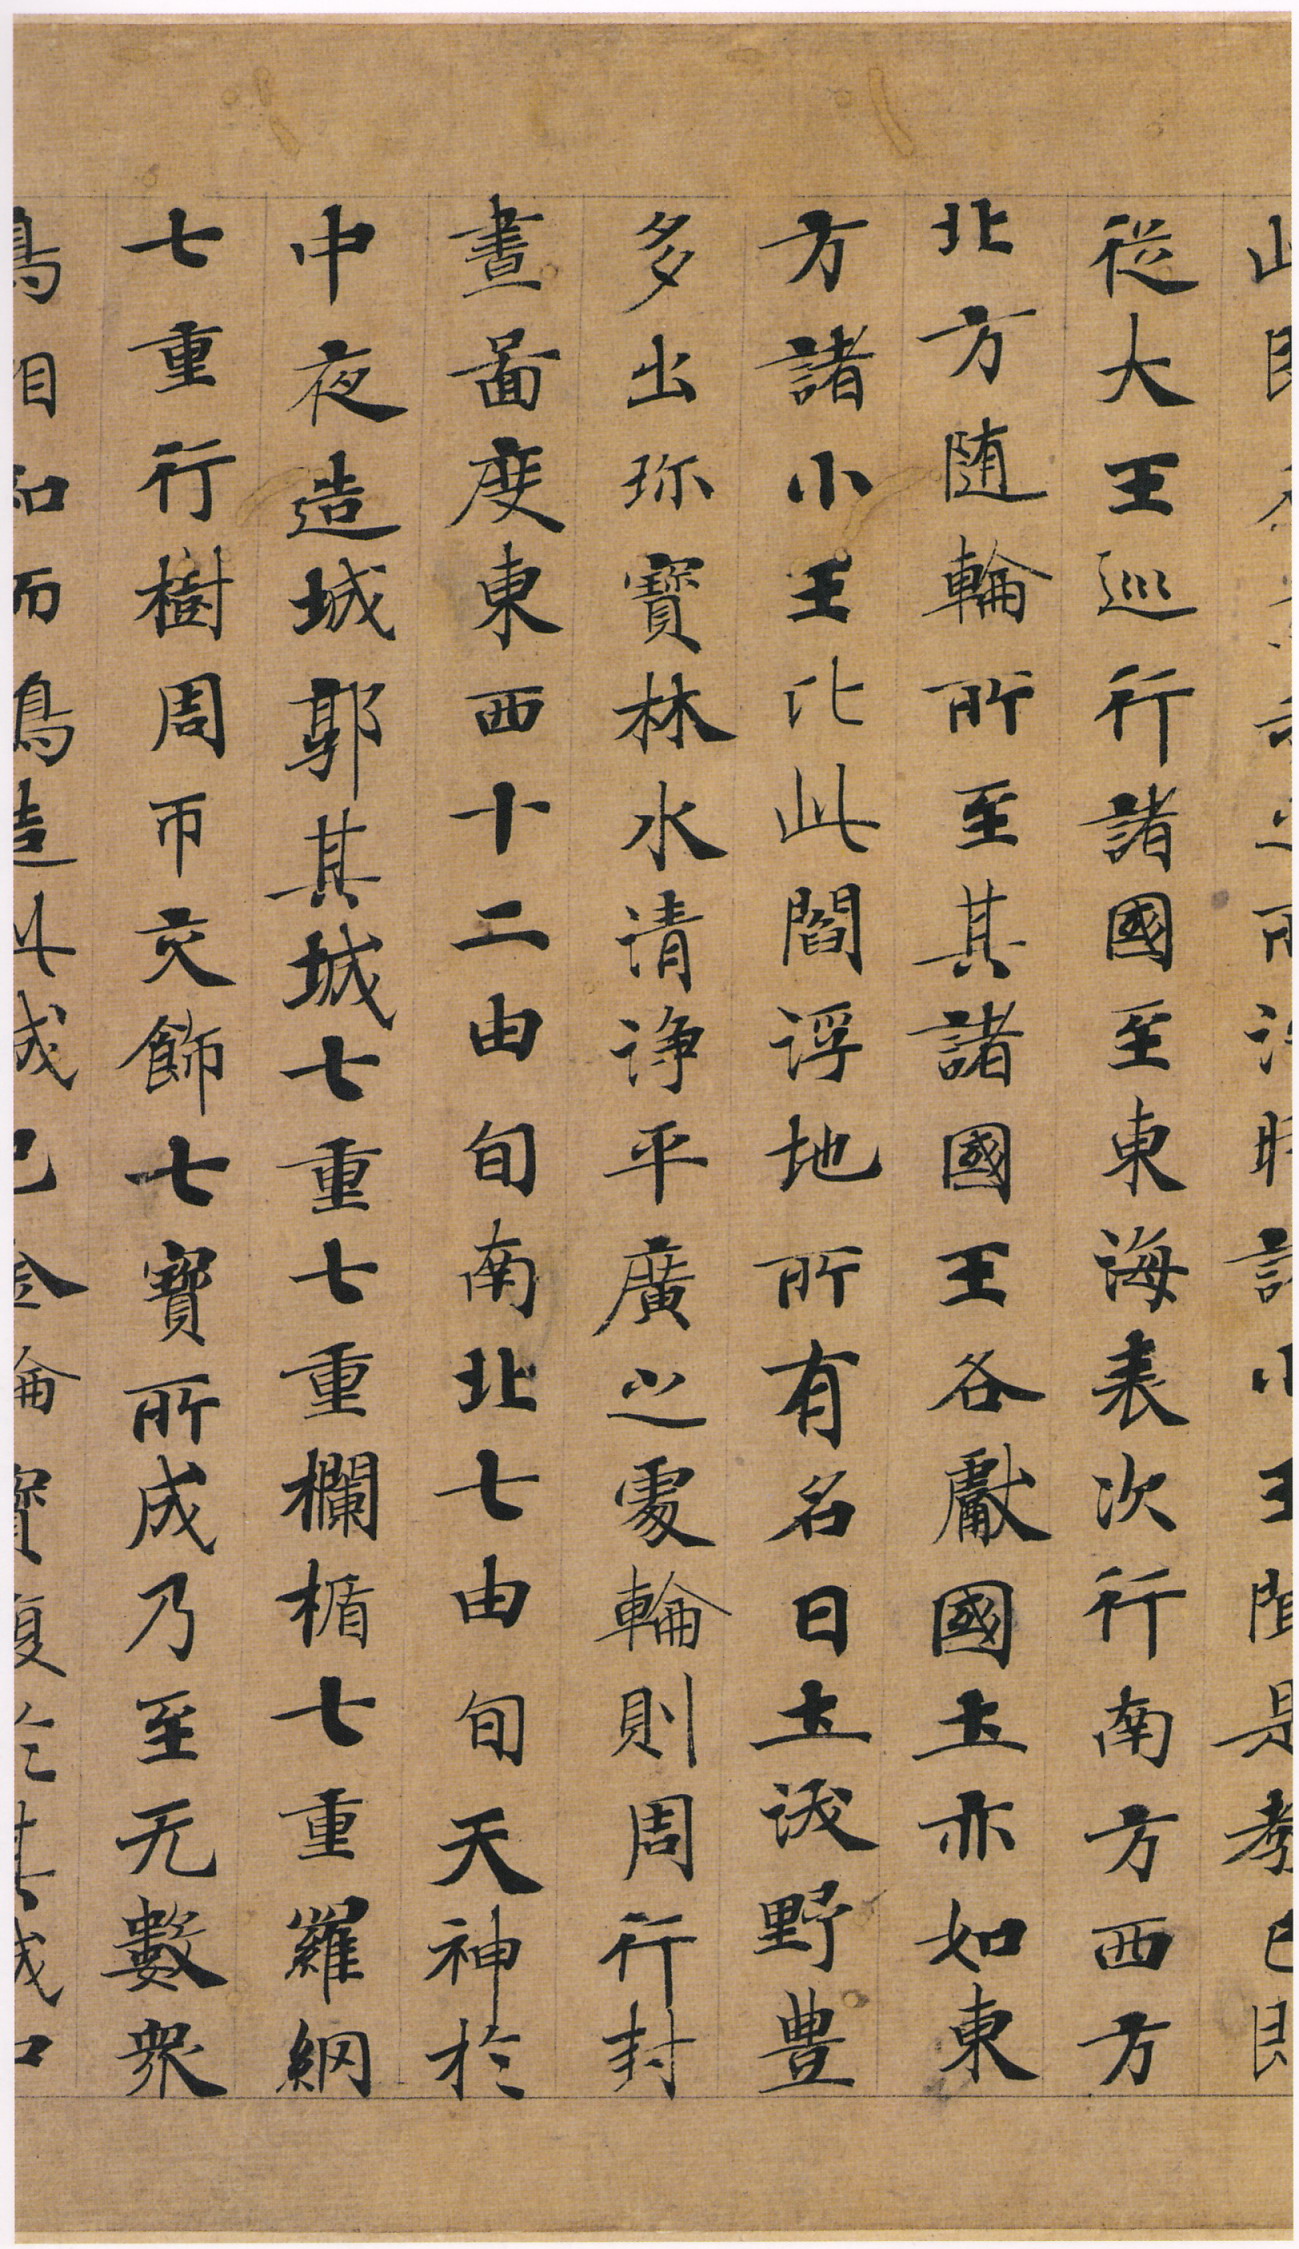 從大王巡行諸國至東海表次行南方西方
北方随輪所至其諸國王各獻國土亦如東
方諸小王比此閻浮地所有名曰土沃野豊
多出珎寳林水清淨平廣之處輪則周行封
畫啚度東西十二由旬南北七由旬天神於
中夜造城郭其城七重七重欄楯七重羅網
七重行樹周帀交飾七寳所成乃至无數衆
鳥相和而鳴造此城已金輪寳復於其城中